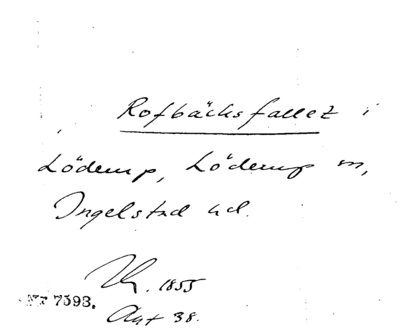 Rofbäcksfallet i
Löderup, Löderup sn,
Ingelstad hd.
1855
Nr 7593.
Akt 38.